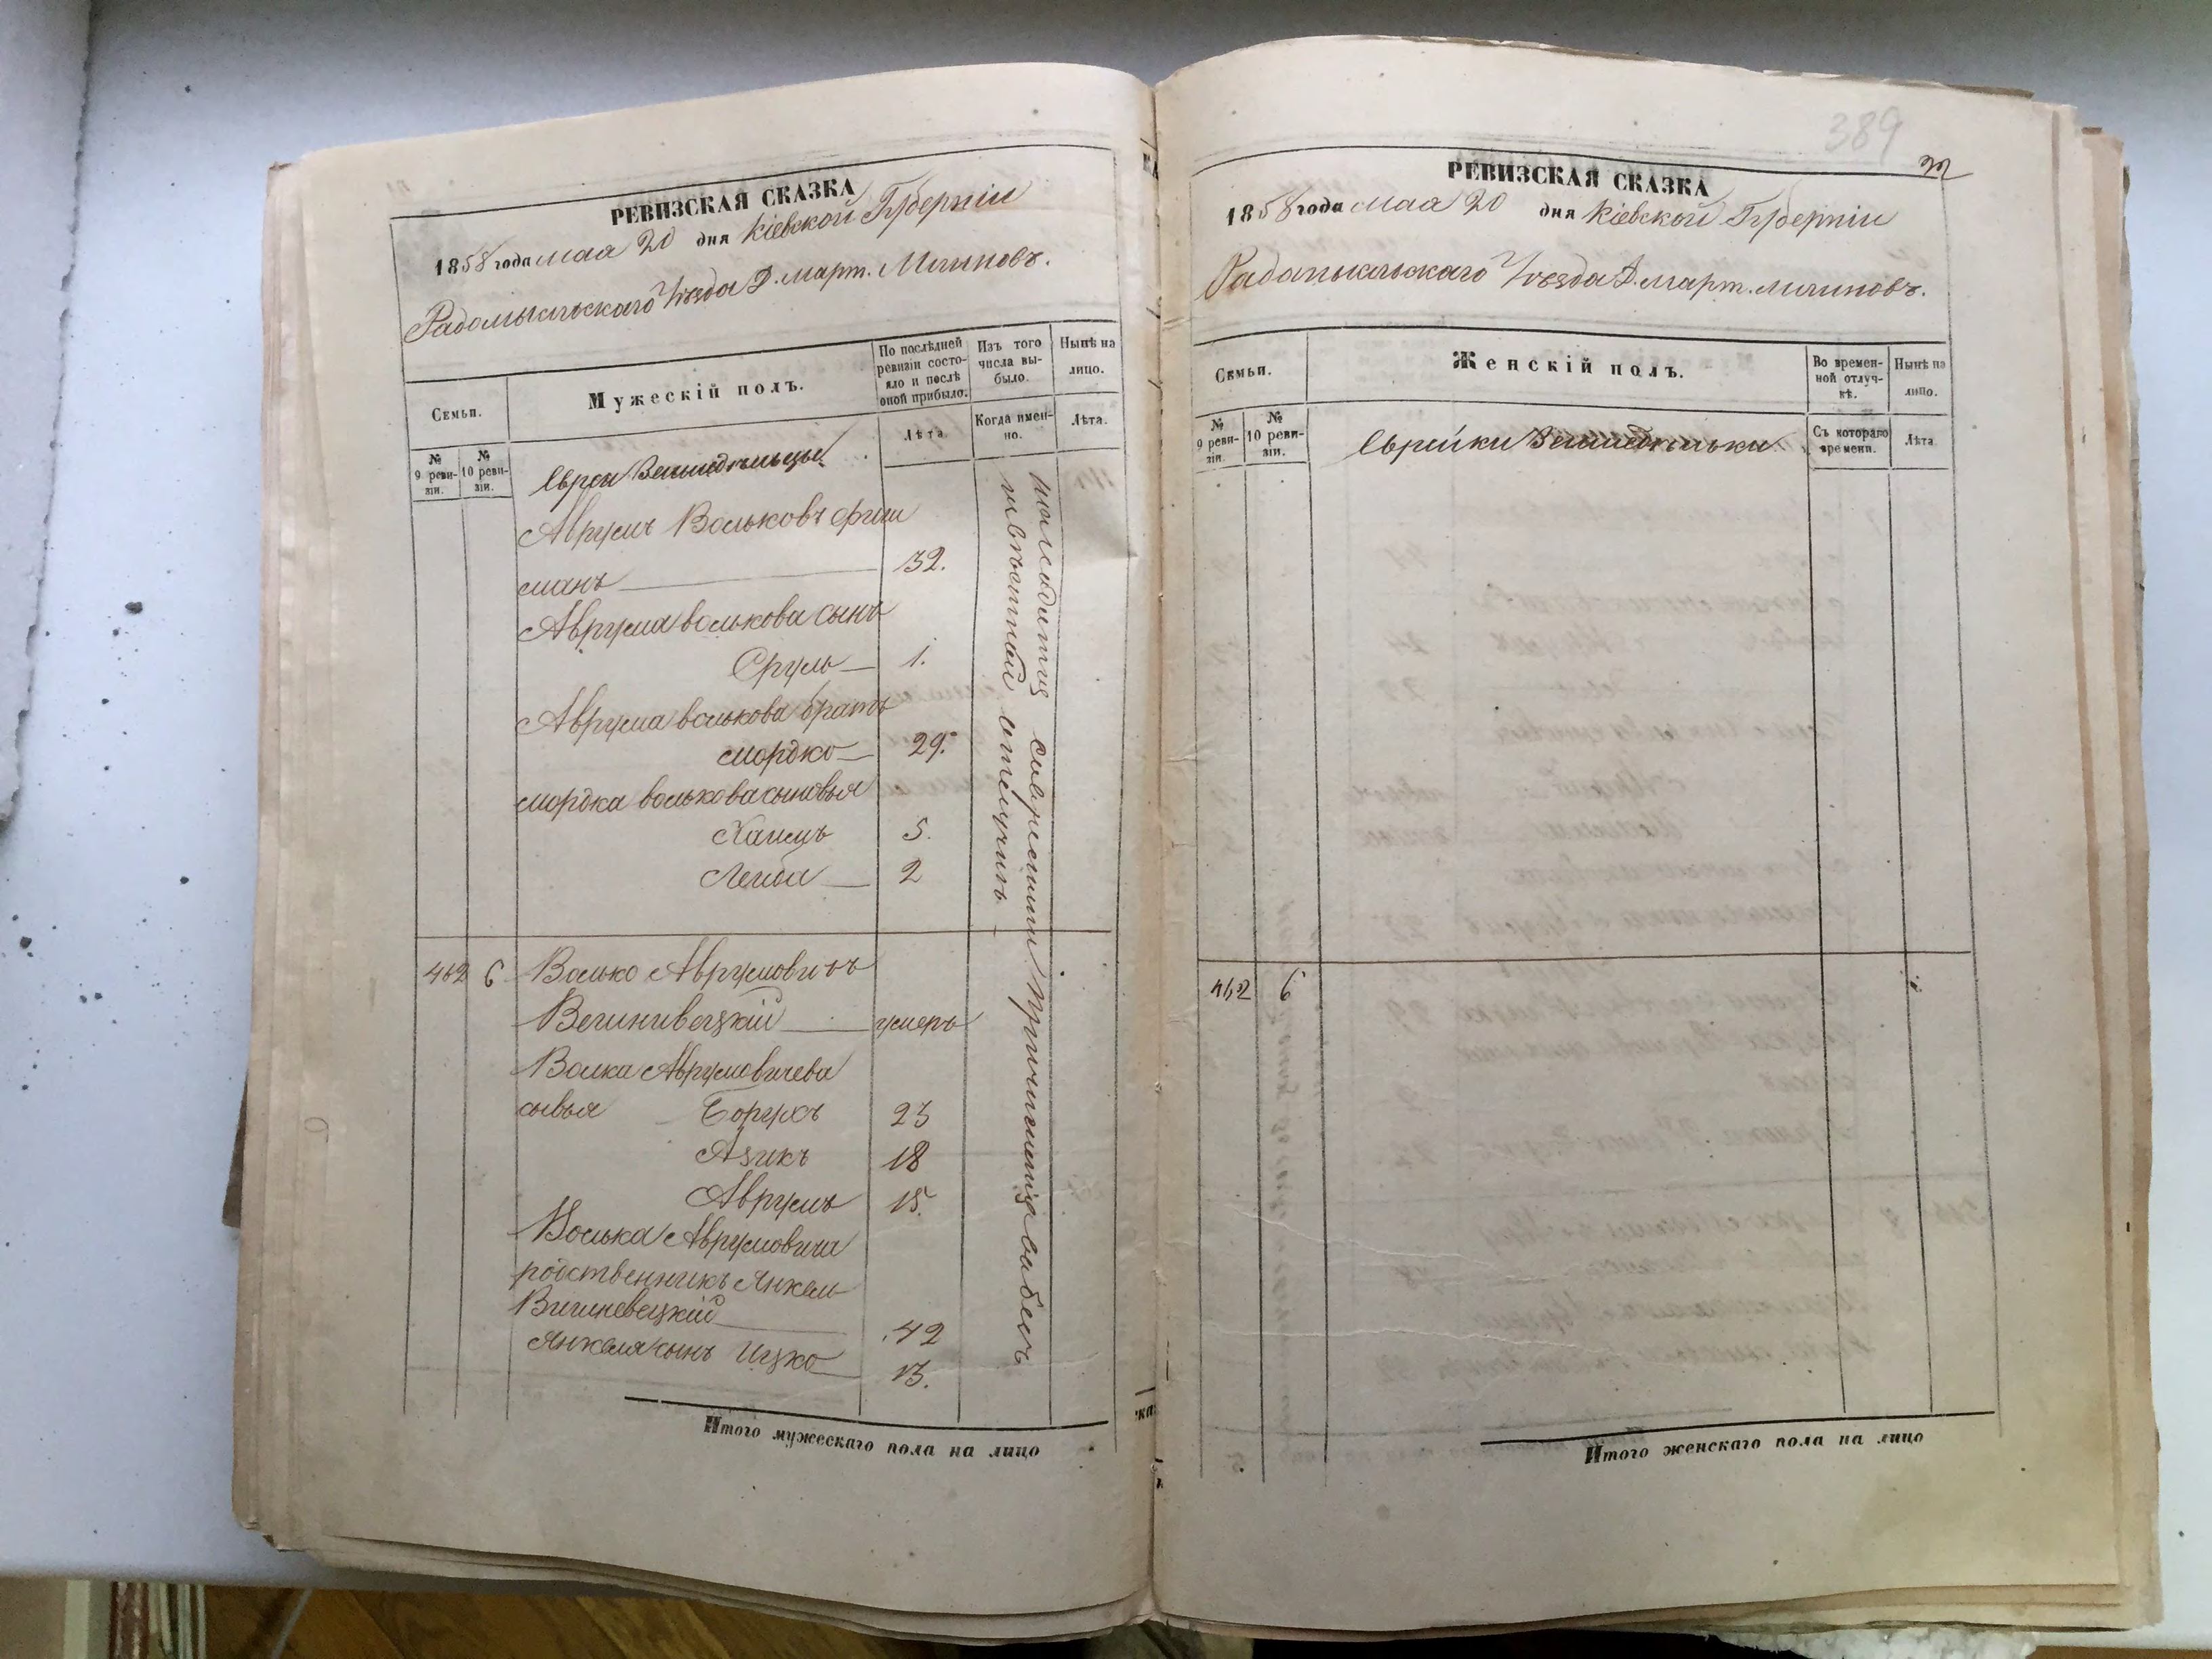 РЕВИЗСКАЯ СКАЗКА
1858 года мая 20 дня Кіевской Губерніи
Радомысльскаго Уѣзда Д. март.
Семьи.
Мужескій полъ.
По послѣдней ревизіи состояло и послѣ оной прибыло.
Изъ того числа выбыло.
Нынѣ на лицо.
№ 9 ревизіи.
№ 10 ревизіи.
Лѣта
Когда именно.
Лѣта.
Евреи Земледѣльцы
Аврумъ Вольковъ Фриш
манъ 32.
Аврума Волькова сынъ
Сруль 1.
Аврума Волькова братъ
Мордко 29.
Мордка Волькова сыновья
Хаимъ 5.
Лейба 2
находится
отлучкѣ
462 6 Волько Аврумовичъ
Вешневецкій умеръ
Волька Аврумовичева
сывья Борухъ 23
Азикъ 18
Аврумъ 15.
Волька Аврумовича
родственникъ Янкель
Вишневецкій 42
Янкеля сынъ Ицко 13.
Итого мужескаго пола на лицо
389
РЕВИЗСКАЯ СКАЗКА
1858 года мая 20 дня Кіевской Губерніи
Радомысльскаго Уѣзда Д. март.
Семьи.
Женскій полъ.
Во временной отлучкѣ.
Нынѣ на лицо.
№ 9 ревизіи.
№ 10 ревизіи.
Съ котораго времени.
Лѣта
Еврейки Земледѣльки
462 6
Итого женскаго пола на лицо